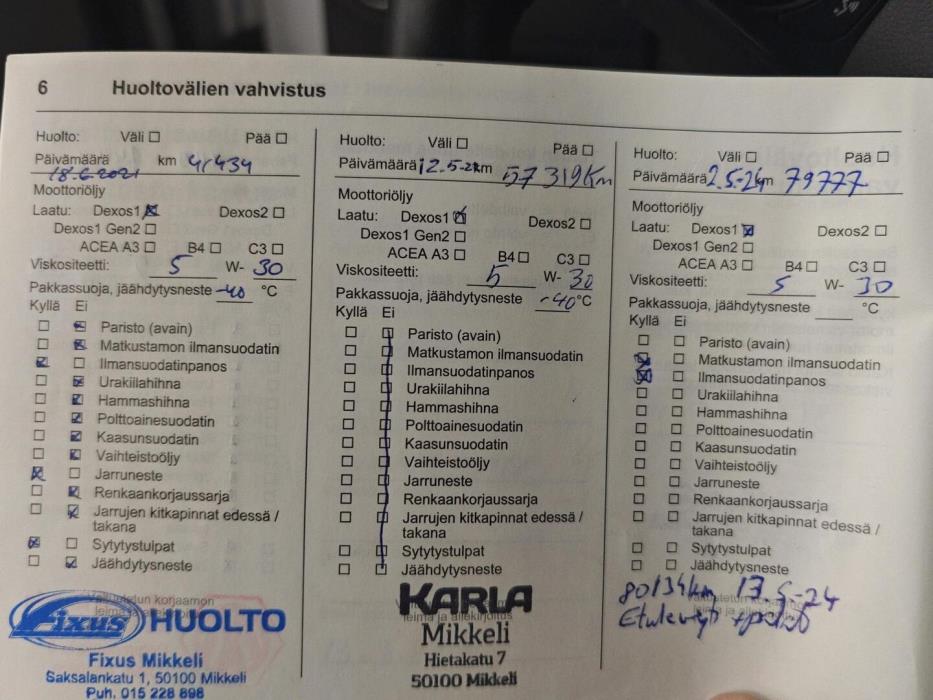 6 Huoltovälien vahvistus
Huolto: Väli ☐ Pää ☐
Päivämäärä km 41434
18.6.2021
Moottoriöljy
Laatu: Dexos1 ☒ Dexos2 ☐
Dexos1 Gen2 ☐
ACEA A3 ☐ B4 ☐ C3 ☐
Viskositeetti: 5 W- 30
Pakkassuoja, jäähdytysneste -40 °C
Kyllä Ei
☐ ☒ Paristo (avain)
☐ ☒ Matkustamon ilmansuodatin
☒ ☐ Ilmansuodatinpanos
☐ ☒ Urakiilahihna
☐ ☒ Hammashihna
☐ ☒ Polttoainesuodatin
☐ ☒ Kaasunsuodatin
☐ ☒ Vaihteistoöljy
☒ ☐ Jarruneste
☐ ☒ Renkaankorjaussarja
☐ ☒ Jarrujen kitkapinnat edessä /
takana
☒ ☐ Sytytystulpat
☐ ☒ Jäähdytysneste
Fixus HUOLTO
Fixus Mikkeli
Saksalankatu 1, 50100 Mikkeli
Puh. 015 228 898
Huolto: Väli ☐ Pää ☐
Päivämäärä 12.5-22 km 57319Km
Moottoriöljy
Laatu: Dexos1 ☒ Dexos2 ☐
Dexos1 Gen2 ☐
ACEA A3 ☐ B4 ☐ C3 ☐
Viskositeetti: 5 W- 30
Pakkassuoja, jäähdytysneste -40 °C
Kyllä Ei
☐ ☐ Paristo (avain)
☐ ☐ Matkustamon ilmansuodatin
☐ ☐ Ilmansuodatinpanos
☐ ☐ Urakiilahihna
☐ ☐ Hammashihna
☐ ☐ Polttoainesuodatin
☐ ☐ Kaasunsuodatin
☐ ☐ Vaihteistoöljy
☐ ☐ Jarruneste
☐ ☐ Renkaankorjaussarja
☐ ☐ Jarrujen kitkapinnat edessä /
takana
☐ ☐ Sytytystulpat
☐ ☐ Jäähdytysneste
KARLA
leima ja allekirjoitus
Mikkeli
Hietakatu 7
50100 Mikkeli
Huolto: Väli ☐ Pää ☐
Päivämäärä 2.5-24 km 79777
Moottoriöljy
Laatu: Dexos1 ☒ Dexos2 ☐
Dexos1 Gen2 ☐
ACEA A3 ☐ B4 ☐ C3 ☐
Viskositeetti: 5 W- 30
Pakkassuoja, jäähdytysneste °C
Kyllä Ei
☐ ☐ Paristo (avain)
☒ ☐ Matkustamon ilmansuodatin
☒ ☐ Ilmansuodatinpanos
☐ ☐ Urakiilahihna
☐ ☐ Hammashihna
☐ ☐ Polttoainesuodatin
☐ ☐ Kaasunsuodatin
☐ ☐ Vaihteistoöljy
☐ ☐ Jarruneste
☐ ☐ Renkaankorjaussarja
☐ ☐ Jarrujen kitkapinnat edessä /
takana
☐ ☐ Sytytystulpat
☐ ☐ Jäähdytysneste
80134km 13.5-24
leima ja
Etulevyt +palat